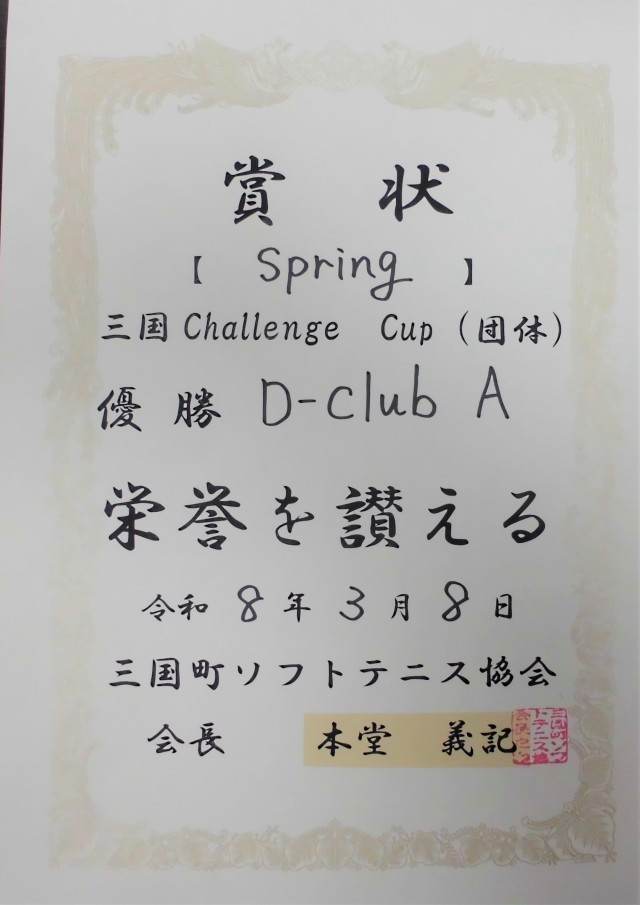 賞 状
【 Spring 】
三国 Challenge Cup（団体）
優 勝 D-club A
栄誉を讃える
令和 8 年 3 月 8 日
三国町ソフトテニス協会
会長 本堂 義記